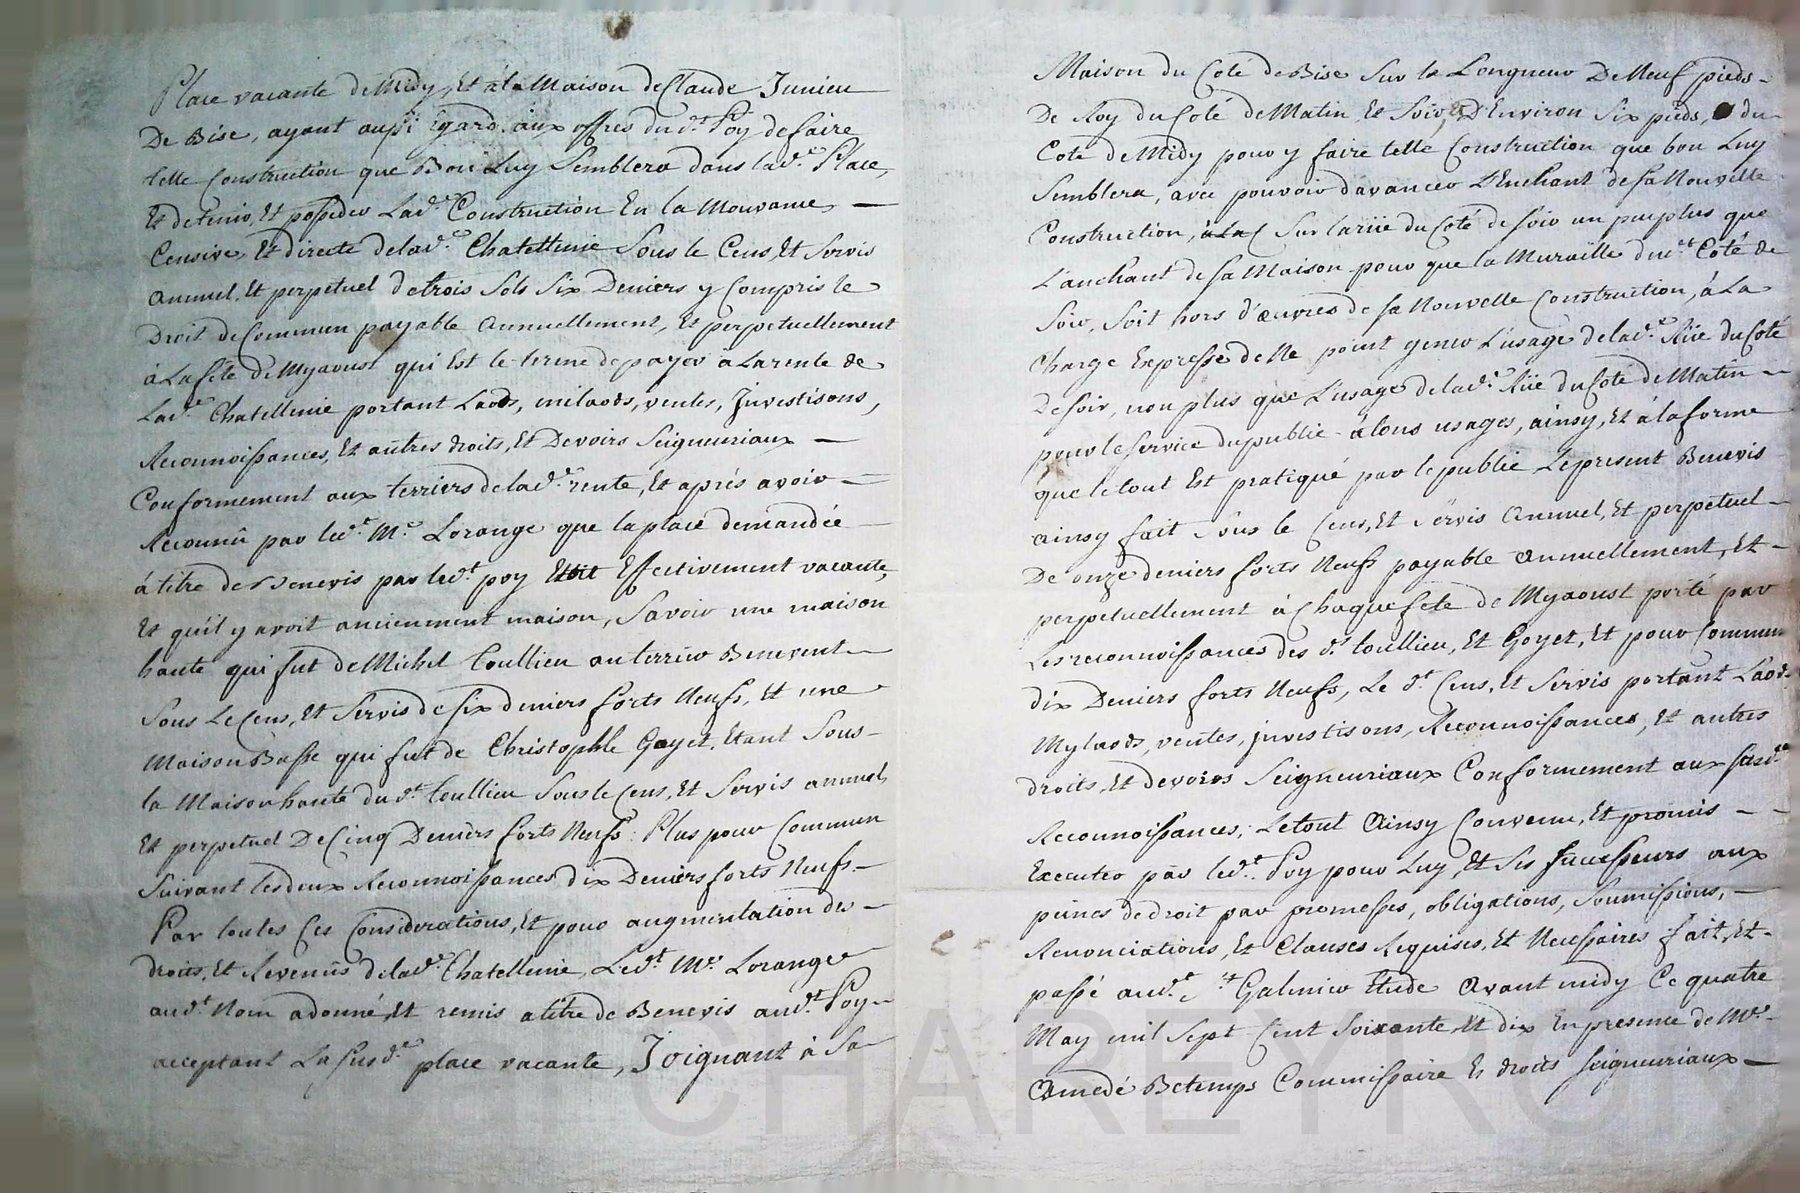 Place vacante de Midy, Et a la Maison de Claude Junieu
De Bise, ayant aussi Egard aux offres du d.t Poy de faire
telle Construction que Bon Luy Semblera dans lad.e Place,
Et de tenir, Et posseder Lad.e Construction En la Mouvance,
Censive, Et directe de lad.e Chatellenie Sous le Cens, Et Servis
annuel, Et perpetuel de trois Sols Six Deniers y Compris le
Droit de Commun payable annuellement, Et perpetuellement
à La fete de Myaoust qui Est le terme de payer à La rente de
Lad.e Chatellenie portant Laods, milaods, ventes, Investisons,
Reconnoissances, Et autres droits, Et Devoirs Seigneuriaux
Conformement aux terriers de lad.e rente, Et aprés avoir
Reconnû par led.t M.e Lorange que la place demandée
à titre de Benevis par led.t poy Etoit Effectivement vacante,
Et qu'il y avoit anciennement maison, Savoir une maison
haute qui fut de Michel Toullieu au terrier Benevent
Sous Le Cens, Et Servis de six deniers forts Neufs, Et une
Maison Basse qui fut de Christophle Goyet, Etant Sous
la Maison haute du d.t Toullieu Sous le Cens, Et Servis annuel
Et perpetuel De Cinq Deniers forts Neufs: Plus pour Commun
Suivant les deux Reconnoissances dix Deniers forts Neufs
Par toutes Ces Considerations, Et pour augmentation des
droits, Et Revenûs de lad.e Chatellenie, Led.t M.e Lorange
aud.t Nom a donné, Et remis a titre de Benevis aud.t Poy
acceptant La susd.e place vacante, Joignant à Sa
Maison du Coté de Bise Sur la Longueur De Neuf pieds
De Roy du Coté de Matin, Et Soir, Et D'Environ Six pieds, du
Coté de Midy pour y faire telle Construction que bon Luy
Semblera, avec pouvoir d'avancer L'Enchant de sa Nouvelle
Construction, Sur la rüe du Coté de soir un peu plus que
L'anchant de sa Maison pour que la Muraille dud.t Coté de
Soir, Soit hors d'œuvres de sa Nouvelle Construction, à La
Charge Expresse de Ne point gener L'usage de lad.e Rüe du Coté
De soir, non plus que L'usage de lad.e Rüe du Coté de Matin
pour le service du public à tous usages, ainsy, Et à la forme
que le tout Est pratiqué par le public Le present Benevis
ainsy fait Sous le Cens, Et Servis annuel, Et perpetuel
De onze deniers forts Neufs payable annuellement, Et
perpetuellement à Chaque fete de Myaoust porté par
Les reconnoissances des d.t Toullieu, Et Goyet, Et pour Commun
dix Deniers forts Neufs, Le d.t Cens, Et Servis portant Laods
Mylaods, ventes, investisons, Reconnoissances, Et autres
droits, Et devoirs Seigneuriaux Conformement aux susd.es
Reconnoissances; Le tout Ainsy Convenu, Et promis
Executer par led.t Poy pour Luy, Et Ses successeurs aux
peines de droit par promesses, obligations, Soumissions,
Renonciations, Et Clauses Requises, Et Necessaires fait, Et
passé aud.t S.t Galmier Etude Avant midy Ce quatre
May mil Sept Cent Soixante, Et dix En presence de M.e
Amedé Betemps Commissaire Es droits seigneuriaux
CHAREYRON